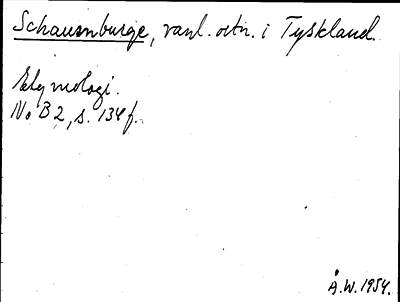 Schauenburge, vanl. ortn. i Tyskland.
Etymologi.
No B 2, s. 134 f.
Å.W. 1954.